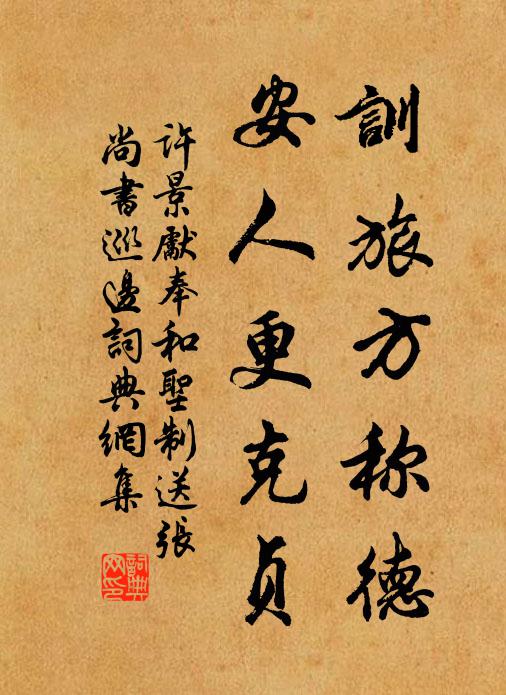 訓旅方称德
安人更克貞
许景獻奉和聖制送張
尚書巡邊詞典網集
詞典网印